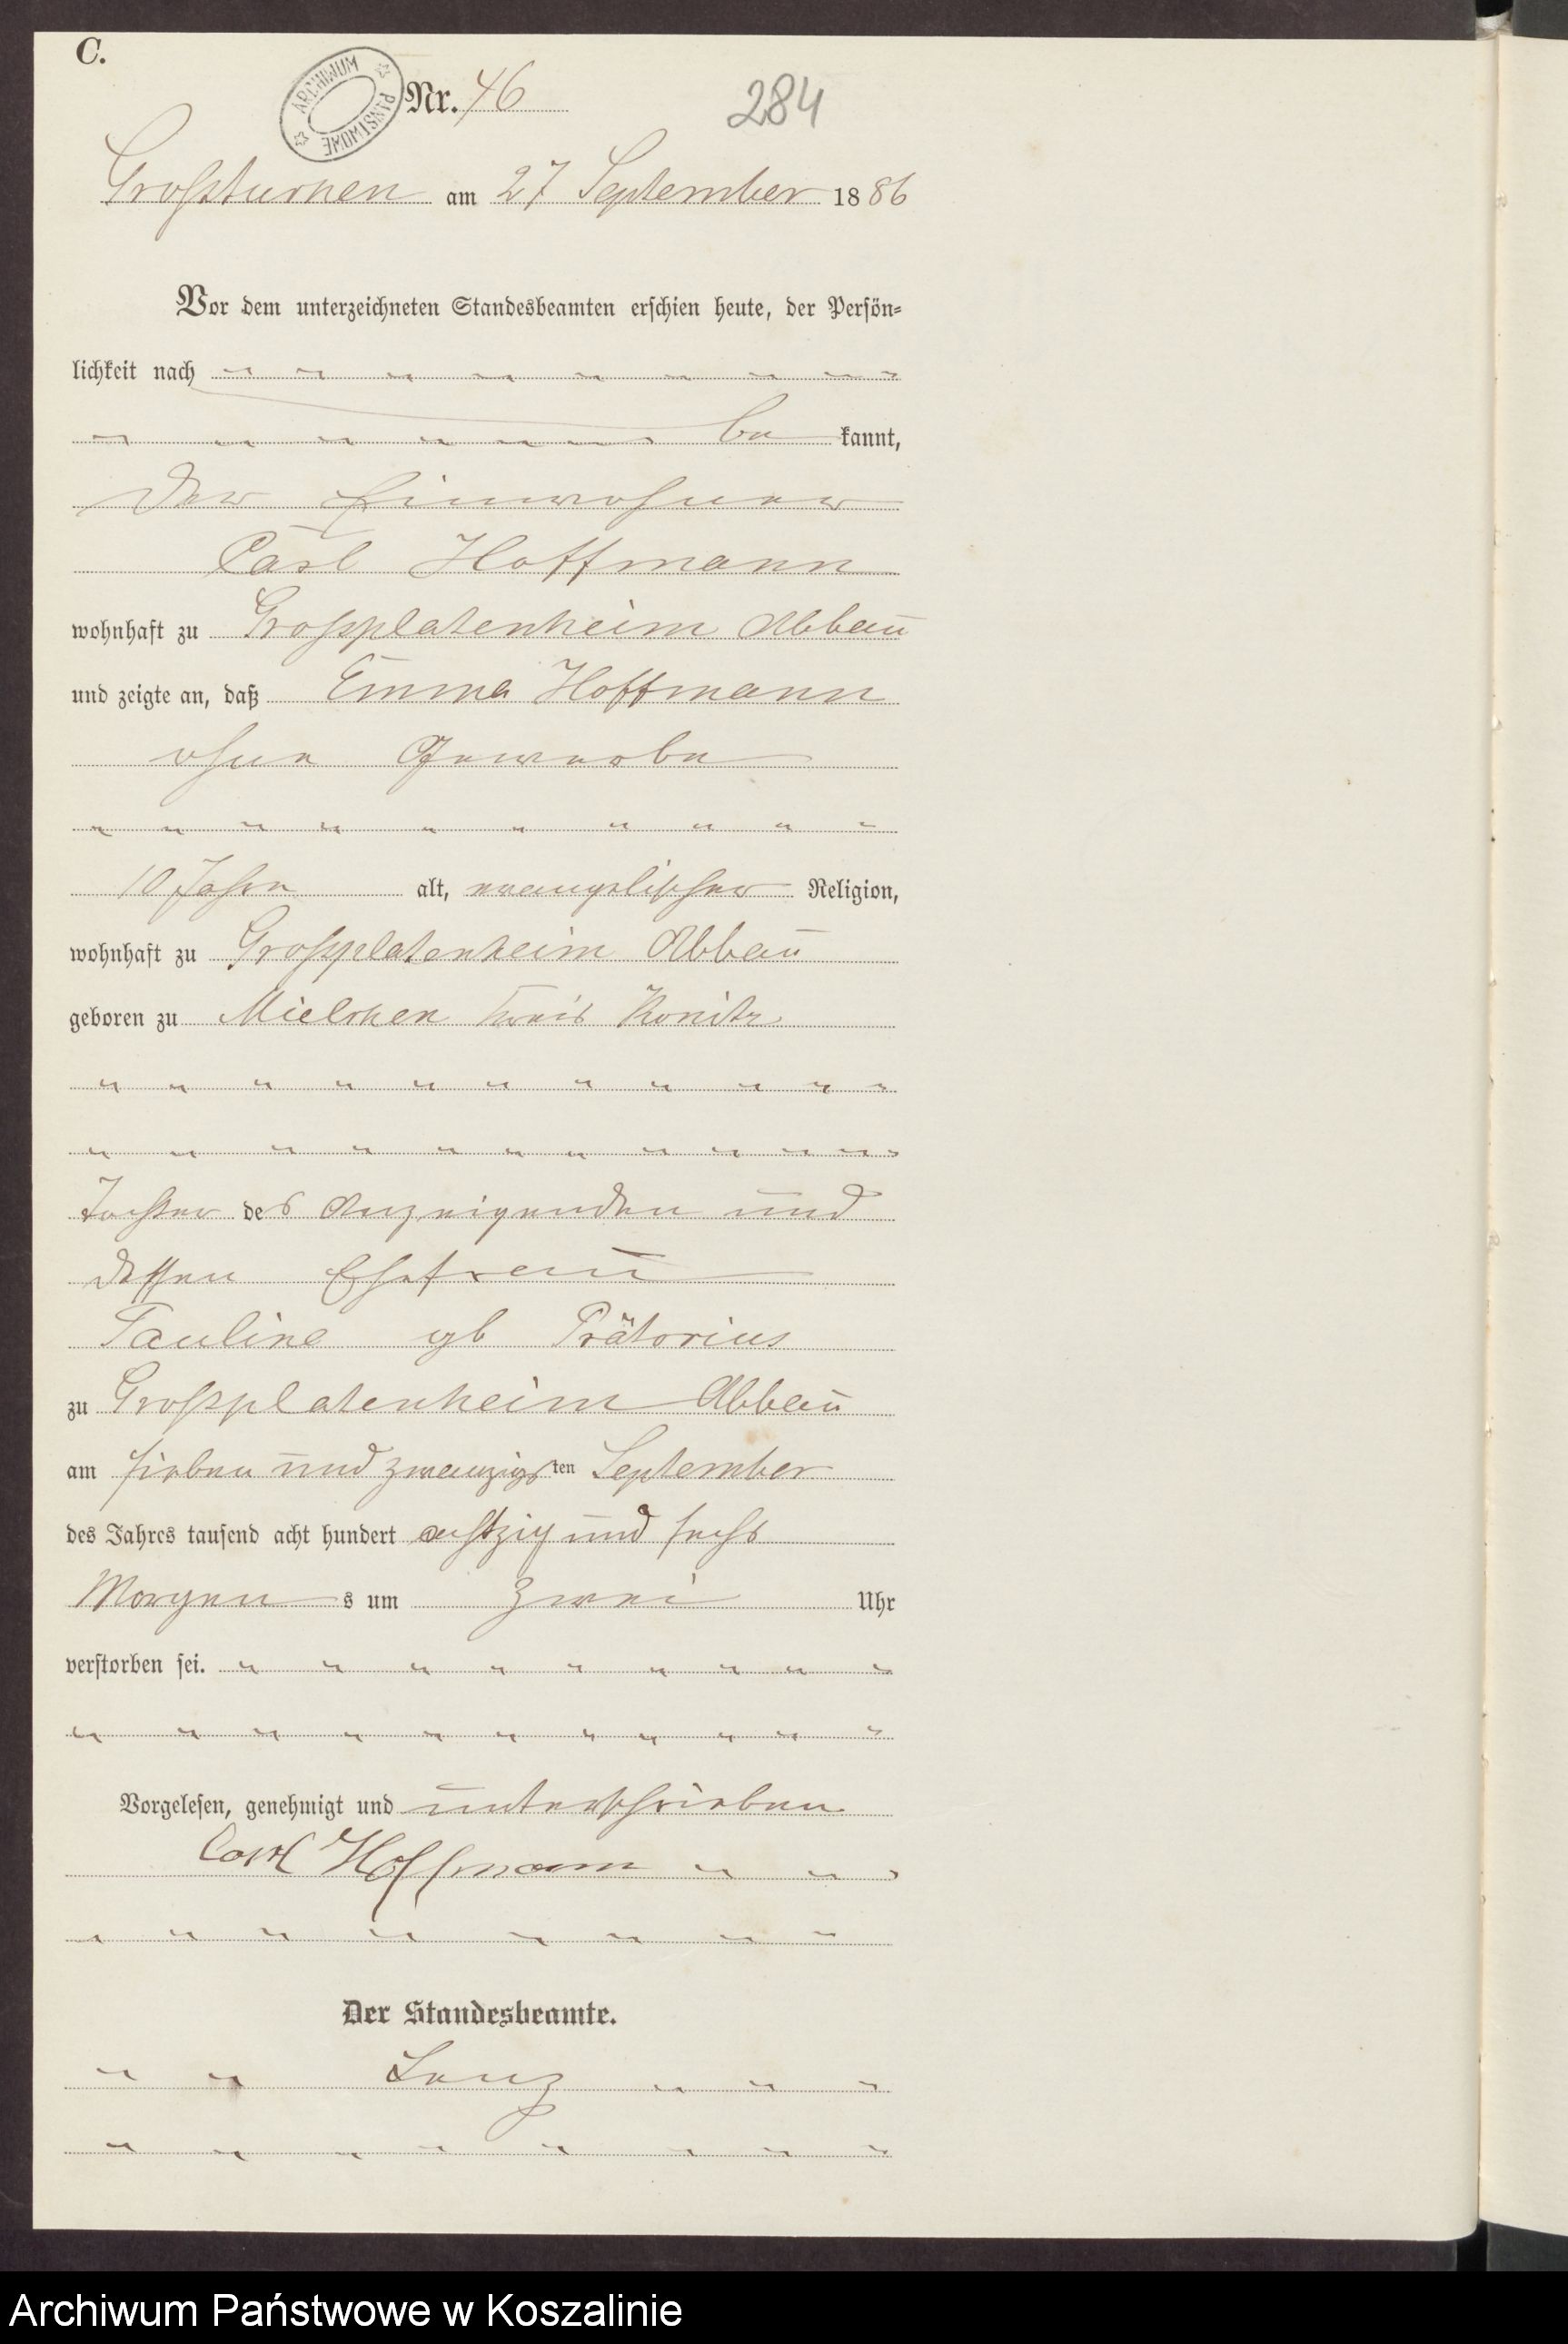 C.
ARCHIWUM PAŃSTWOWE
Nr. 46
284
Großturnen am 27 September 1886
Vor dem unterzeichneten Standesbeamten erschien heute, der Persön-
lichkeit nach
be kannt,
der Einwohner
Carl Hoffmann
wohnhaft zu Großplatenheim Abbau
und zeigte an, daß Emma Hoffmann
ohne Gewerbe
10 Jahre alt, evangelischer Religion,
wohnhaft zu Großplatenheim Abbau
geboren zu Mielchen Kreis Konitz
Tochter des Anzeigenden und
dessen Ehefrau
Pauline geb Prätorius
zu Großplatenheim Abbau
am sieben und zwanzigsten September
des Jahres tausend acht hundert achtzig und sechs
Morgens um zwei Uhr
verstorben sei.
Vorgelesen, genehmigt und unterschrieben
Carl Hoffmann
Der Standesbeamte.
Lenz
Archiwum Państwowe w Koszalinie